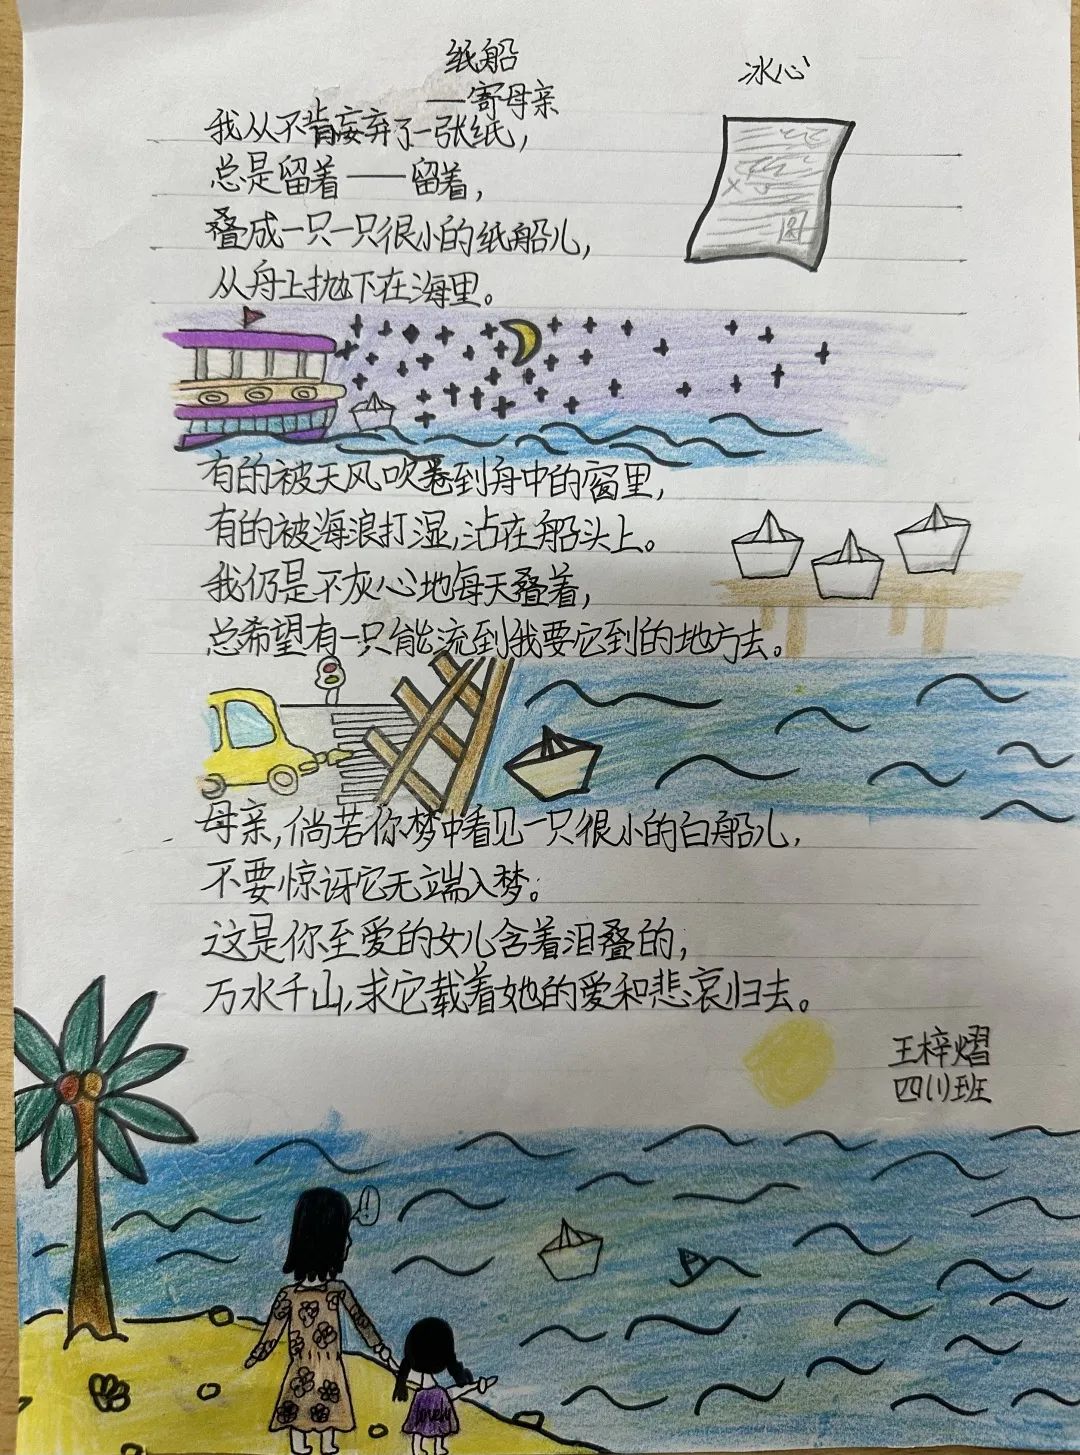 纸船
——寄母亲
冰心
我从不肯妄弃了一张纸，
总是留着——留着，
叠成一只一只很小的纸船儿，
从舟上抛下在海里。
有的被天风吹卷到舟中的窗里，
有的被海浪打湿，沾在船头上。
我仍是不灰心地每天叠着，
总希望有一只能流到我要它到的地方去。
母亲，倘若你梦中看见一只很小的白船儿，
不要惊讶它无端入梦。
这是你至爱的女儿含着泪叠的，
万水千山，求它载着她的爱和悲哀归去。
王梓熠
四(1)班
!
lovely